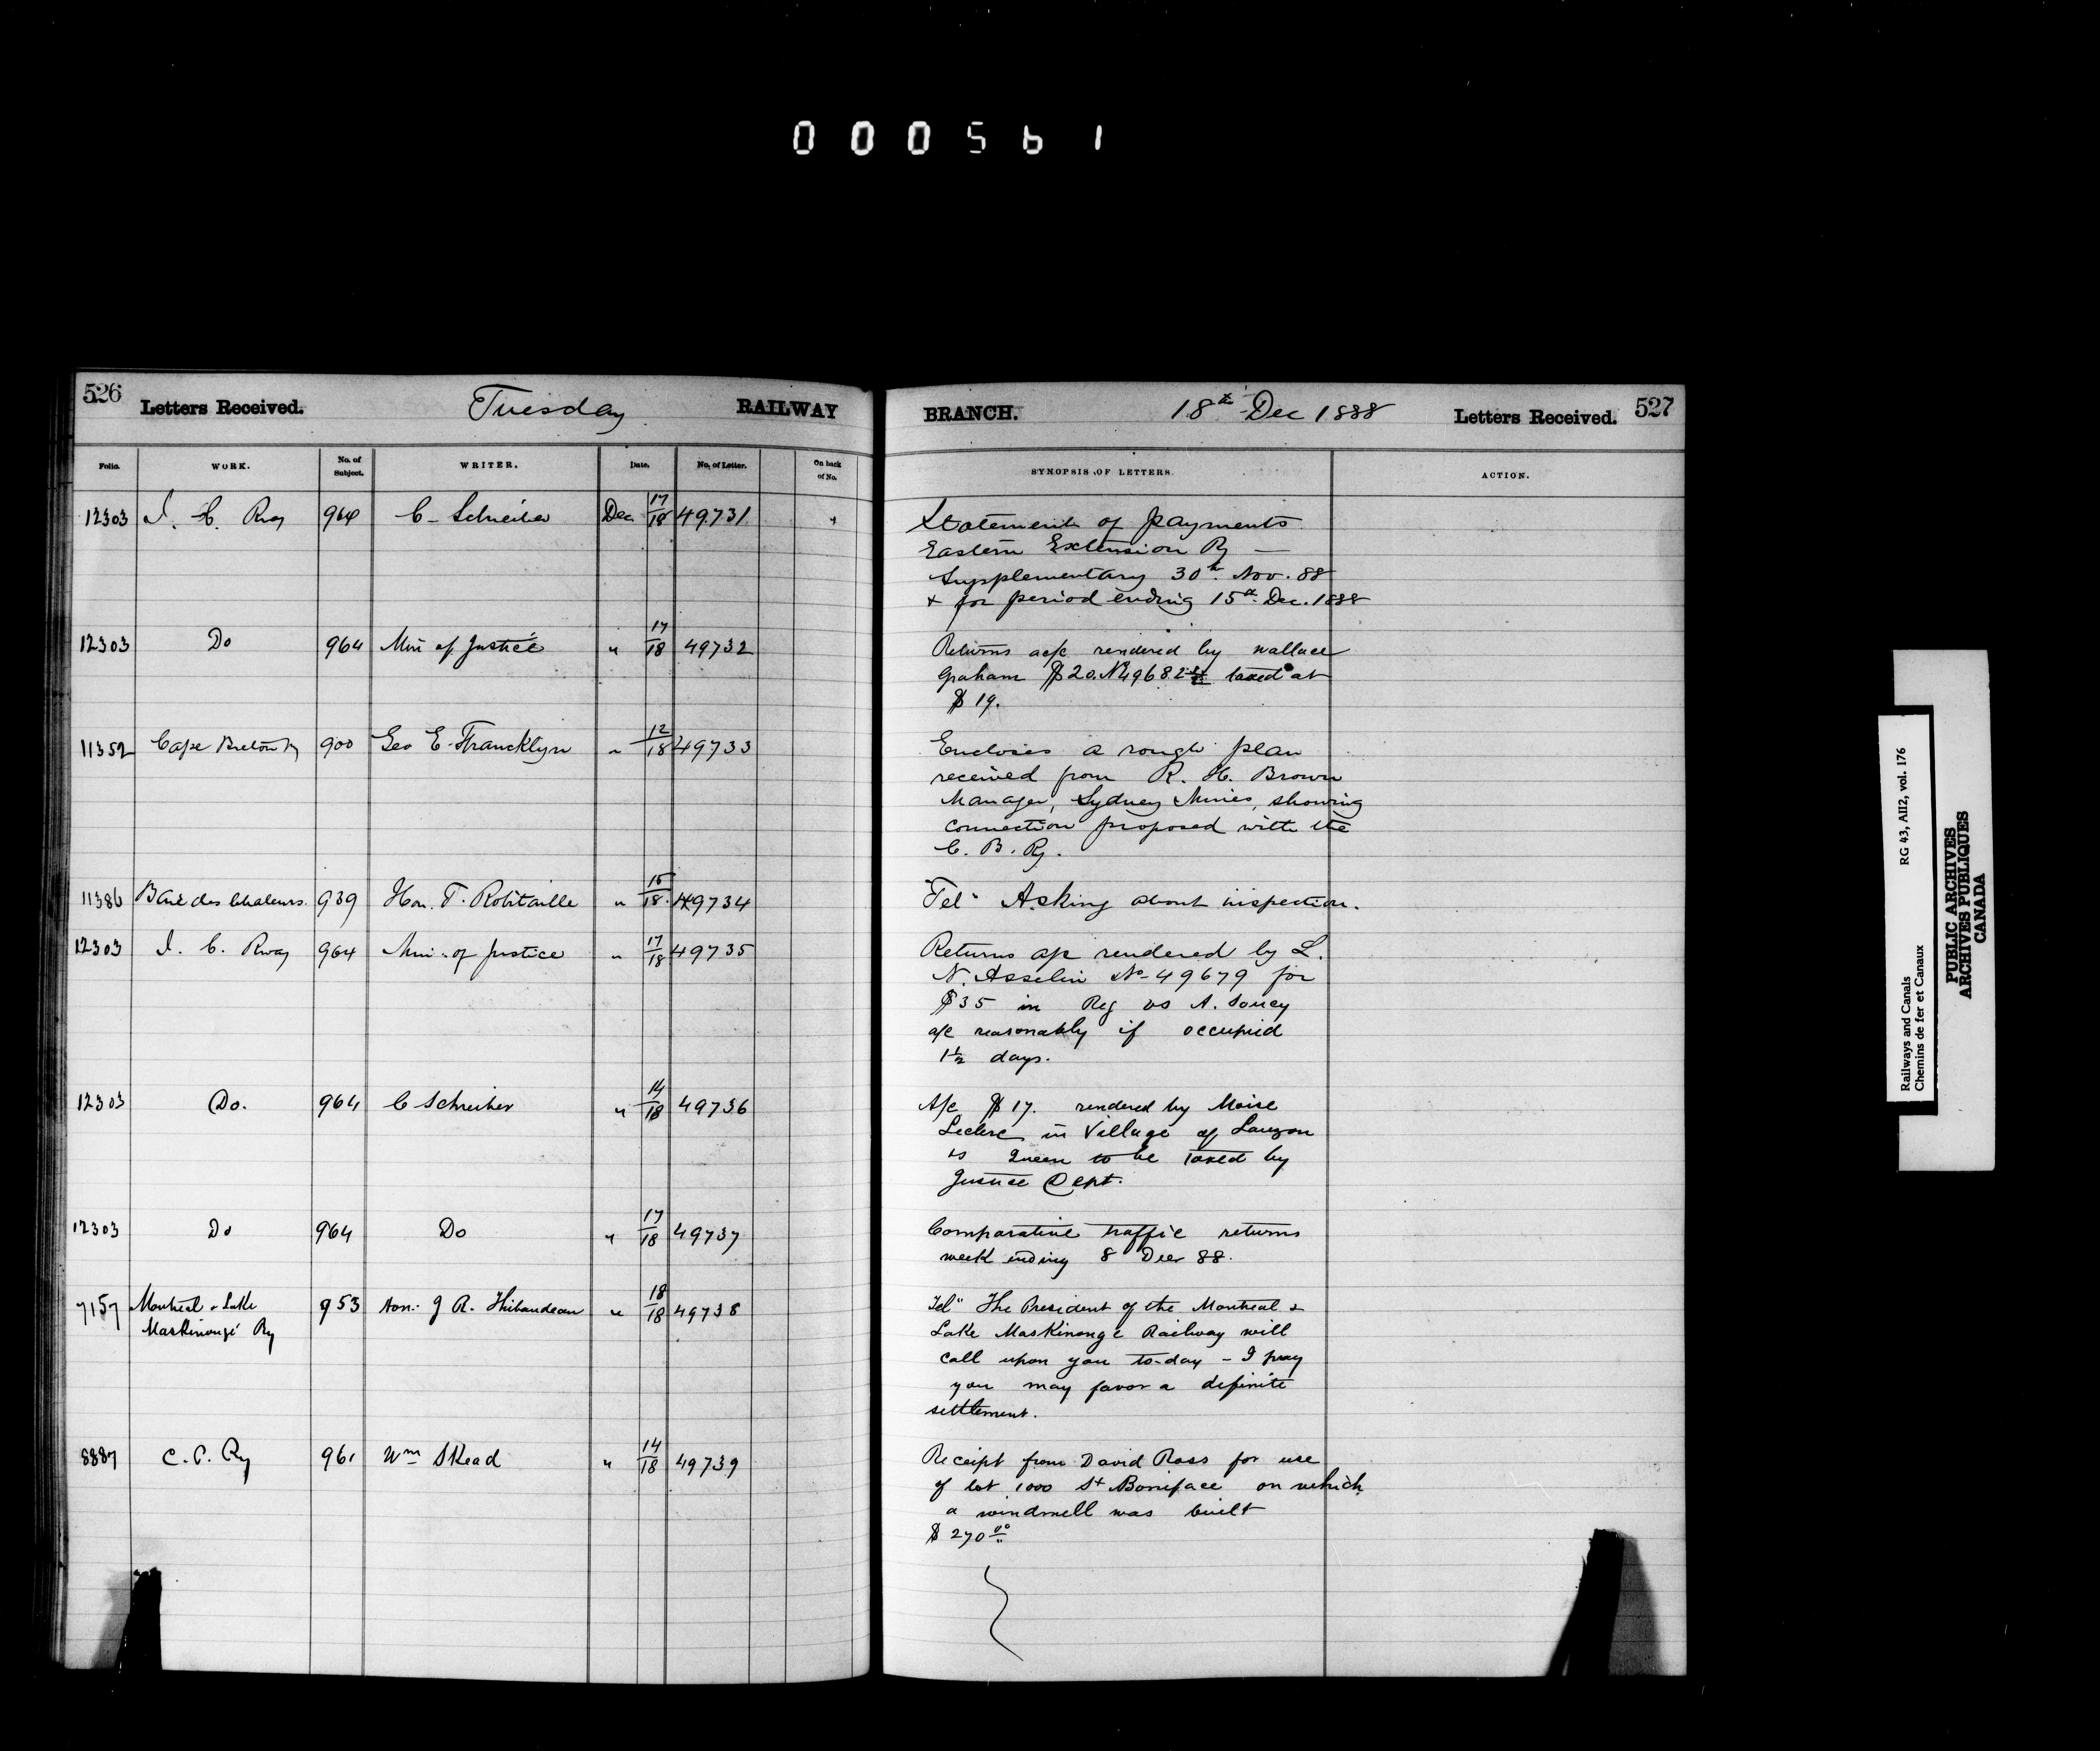 000561
526 Letters Received. Tuesday RAILWAY
Folio. WORK. No. of Subject. WRITER. Date. No. of Letter. On back of No.
12303 I. C. Rwy 964 C. Schreiber Dec 17/18 49731
12303 Do 964 Min of Justice " 17/18 49732
11352 Cape Breton Ry 900 Geo E Francklyn " 12/18 49733
11386 Baie des Chaleurs 939 Hon. T. Robitaille " 15/18 49734
12303 I. C. Rway 964 Min. of Justice " 17/18 49735
12303 Do. 964 C Schreiber " 14/18 49736
12303 Do 964 Do " 17/18 49737
7157 Montreal & Lake 953 Hon. J R. Thibaudeau " 18/18 49738
Maskinongé Ry
8887 C. P. Ry 961 Wm Skead " 14/18 49739
BRANCH. 18th Dec 1888 Letters Received. 527
SYNOPSIS OF LETTERS. ACTION.
Statement of payments
Eastern Extension Ry —
Supplementary 30th Nov. 88
+ for period ending 15th Dec. 1888
Returns a/c rendered by Wallace
Graham $20. No 49682 taxed at
$19.
Encloses a rough plan
received from R. H. Brown
Manager, Sydney Mines, showing
connection proposed with the
C. B. Ry.
Tel" Asking about inspection.
Returns a/c rendered by L.
N. Asselin No 49679 for
$35 in Reg vs A. Soucy
a/c reasonably if occupied
1½ days.
A/c $17. rendered by Moise
Leclerc in Village of Lauzon
vs Queen to be taxed by
Justice Dept.
Comparative traffic returns
week ending 8 Decr 88.
Tel" The President of the Montreal &
Lake Maskinonge Railway will
call upon you to-day – I pray
you may favor a definite
settlement.
Receipt from David Ross for use
of lot 1000 St Boniface on which
a windmill was built
$270.00
Railways and Canals RG 43, AII2, vol. 176
Chemins de fer et Canaux
PUBLIC ARCHIVES
ARCHIVES PUBLIQUES
CANADA